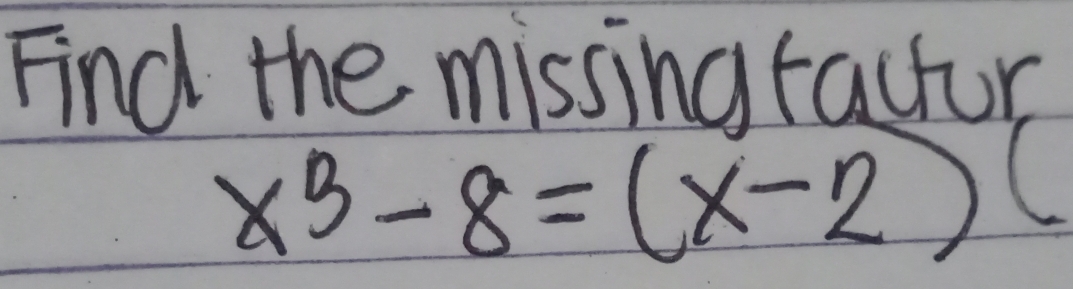 Find the missing factor
x³ - 8 = (x - 2) (